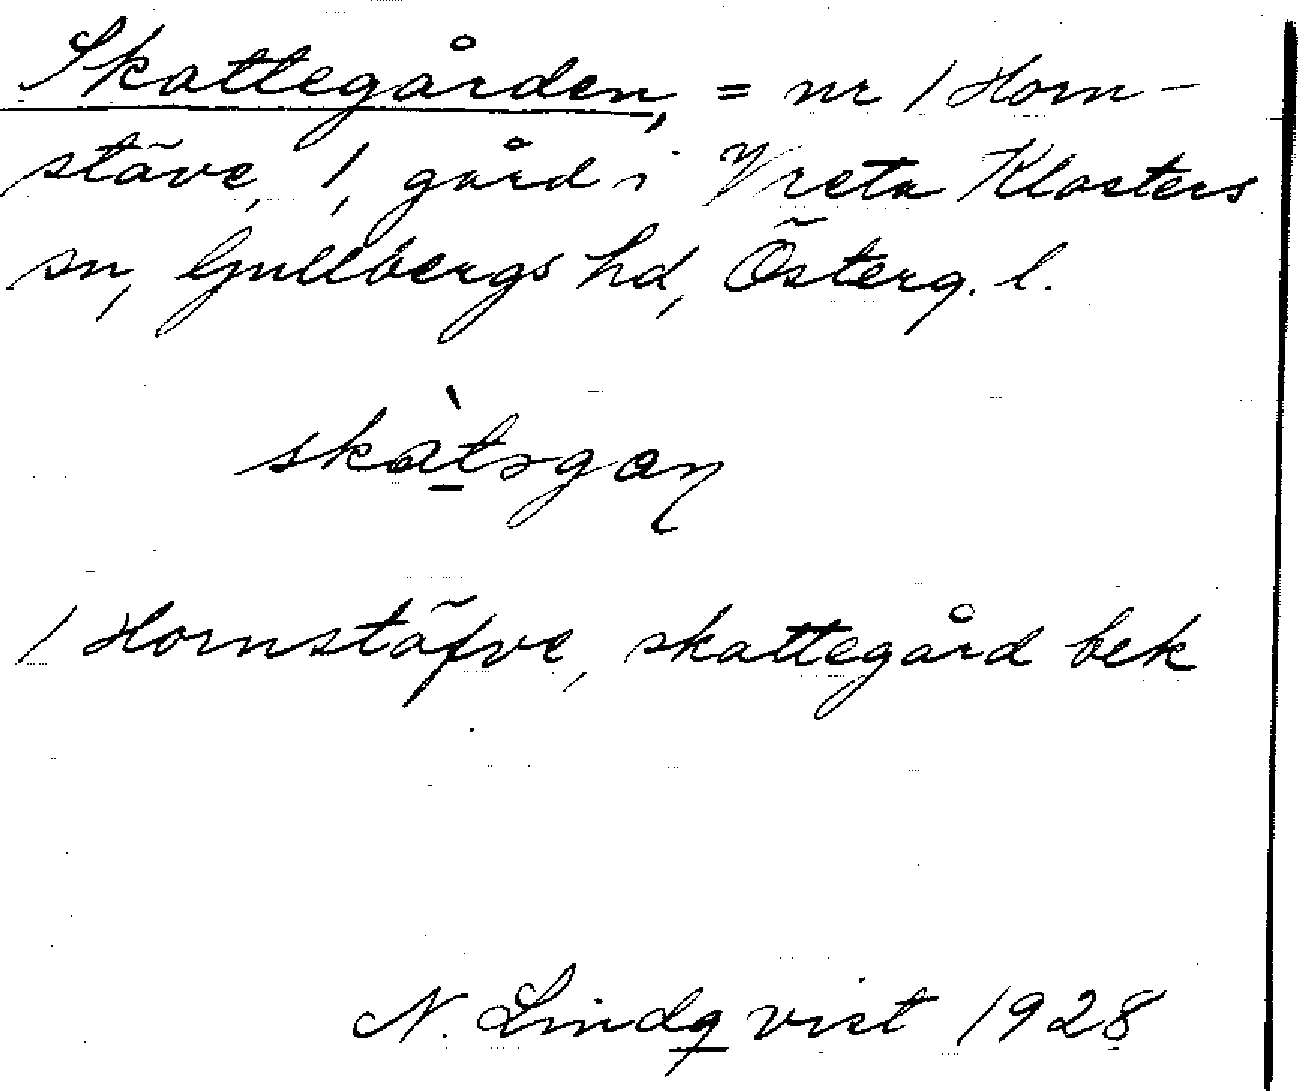 Skattegården, = nr 1 Horn-
stäve, 1, gård i Vreta Klosters
sn, Gullbergs hd, Österg. l.
skàtəgaṇ
1 Hornstäfve, skattegård bek
N. Lindqvist 1928